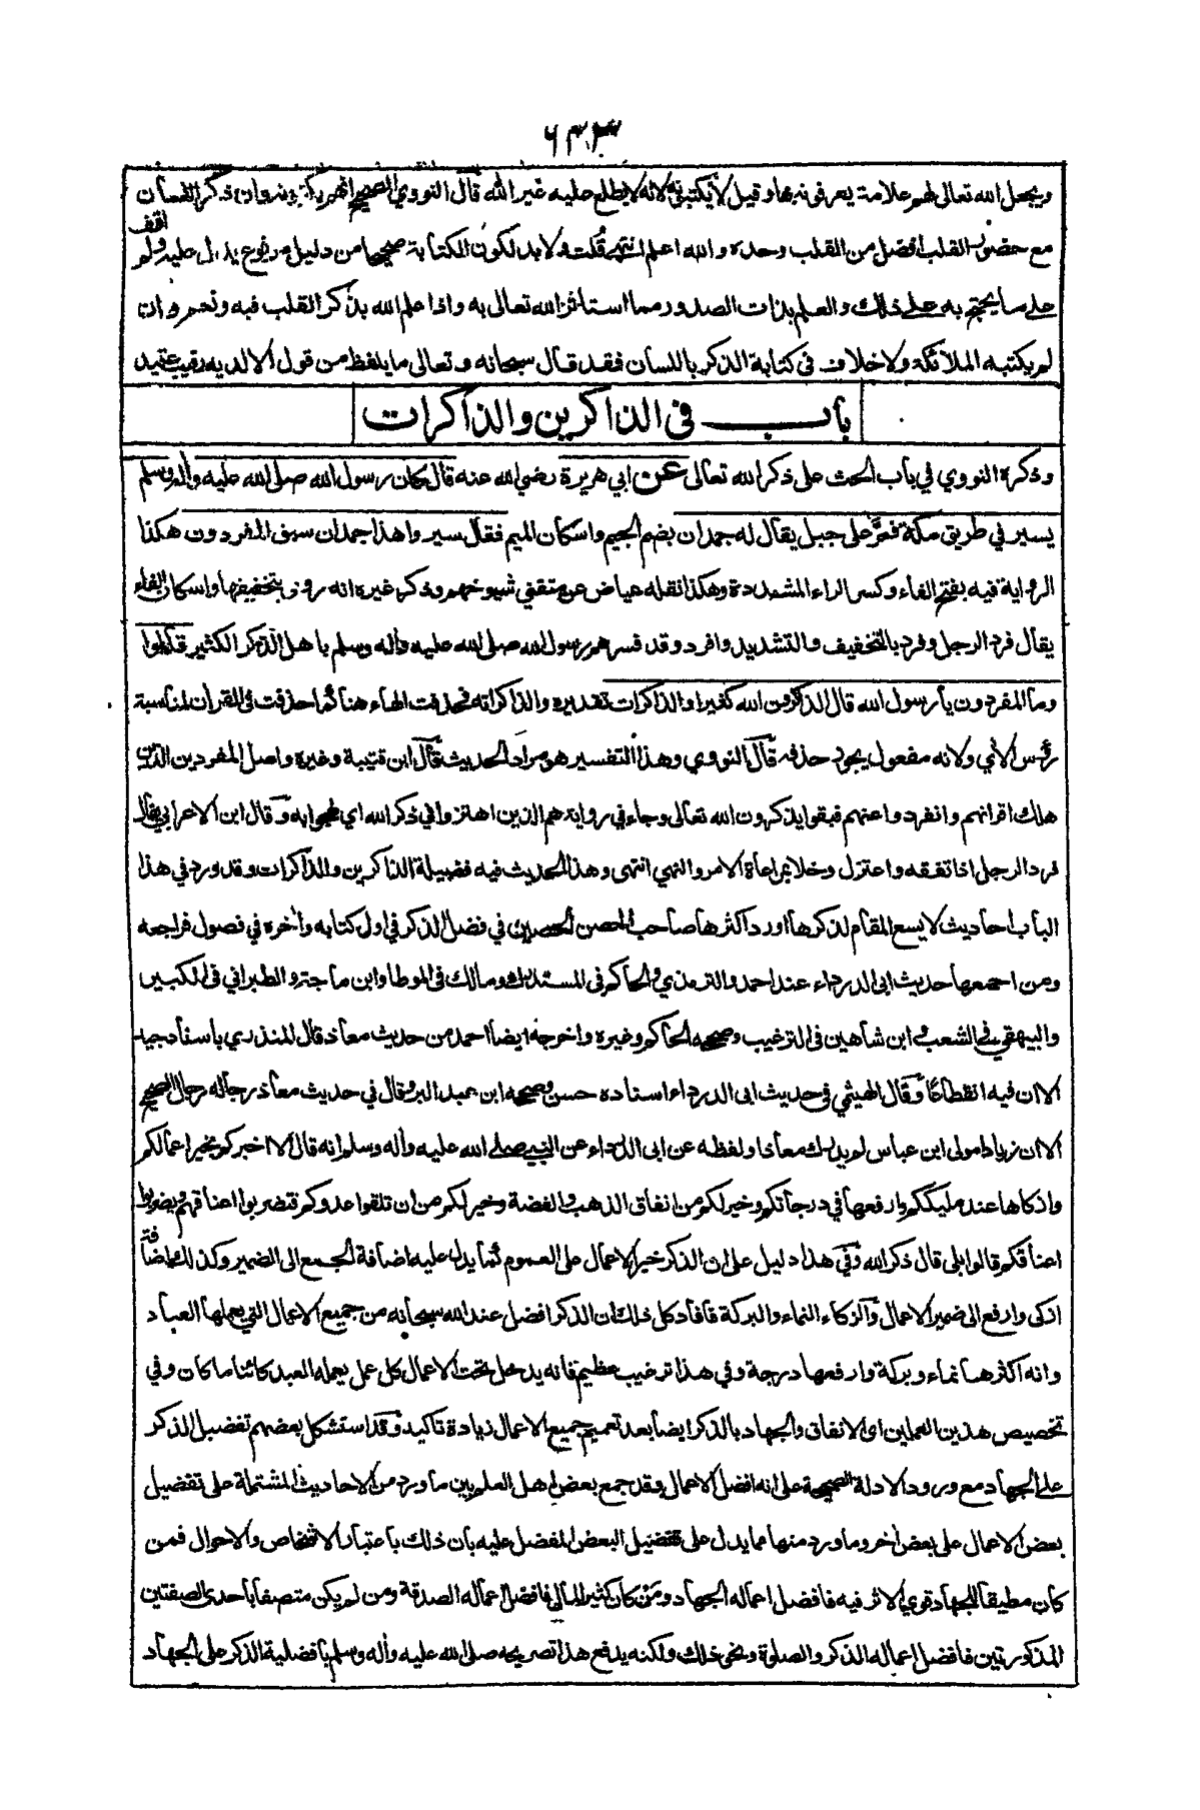 ٦٣٣
ويجعل الله تعالى لهم علامة يعرفونه بها وقيل لا يكتبونه لانه لا يطلع عليه غير الله قال النووي الصحيح انهم يكتبونه وان ذكر اللسان
مع حضور القلب افضل من القلب وحده والله اعلم انتهى قلت ولا بد لكون الكتابة صحيحا من دليل مرفوع يدل عليه ولم اقف
على ما يحتج به على ذلك والعلم بذات الصدور مما استأثر الله تعالى به واذا علم الله بذكر القلب فبه ونعم وان
لم يكتبه الملائكة ولا خلاف في كتابة الذكر باللسان فقد قال سبحانه وتعالى ما يلفظ من قول الا لديه رقيب عتيد
باب في الذاكرين والذاكرات
وذكره النووي في باب الحث على ذكر الله تعالى عن ابي هريرة رضي الله عنه قال كان رسول الله صلى الله عليه وآله وسلم
يسير في طريق مكة فمر على جبل يقال له جمدان بضم الجيم واسكان الميم فقال سيروا هذا جمدان سبق المفردون هكذا
الرواية فيه بفتح الفاء وكسر الراء المشددة وهكذا نقله عياض عن متقني شيوخهم وذكر غيره انه روي بتخفيفها واسكان الفاء
يقال فرد الرجل وفرد بالتخفيف والتشديد وافرد وقد فسرهم رسول الله صلى الله عليه وآله وسلم باهل الذكر الكثير قالوا
وما المفردون يا رسول الله قال الذاكرون الله كثيرا والذاكرات تقديره والذاكراته فحذفت الهاء هنا كما حذفت في القرآن لمناسبة
رؤس الآي ولانه مفعول يجوز حذفه قال النووي وهذا التفسير هو مراد الحديث قال ابن قتيبة وغيره واصل المفردين الذين
هلك اقرانهم وانفردوا عنهم فبقوا يذكرون الله تعالى وجاء في رواية هم الذين اهتزوا في ذكر الله اي لهجوا به وقال ابن الاعرابي يقال
فرد الرجل اذا تفقه واعتزل وخلا بمراعاة الامر والنهي انتهى وهذا الحديث فيه فضيلة الذاكرين والذاكرات وقد ورد في هذا
الباب احاديث لا يسع المقام لذكرها اورد اكثرها صاحب الحصن الحصين في فضل الذكر في اول كتابه وآخره في فصول فراجعه
ومن اجمعها حديث ابي الدرداء عند احمد والترمذي والحاكم في المستدرك ومالك في الموطا وابن ماجة والطبراني في الكبير
والبيهقي في الشعب وابن شاهين في الترغيب وصححه الحاكم وغيره واخرجه ايضا احمد من حديث معاذ قال المنذري باسناد جيد
الا ان فيه انقطاعا وقال الهيثمي في حديث ابي الدرداء اسناده حسن وصححه ابن عبد البر وقال في حديث معاذ رجاله رجال الصحيح
الا ان زيادا مولى ابن عباس لم يدرك معاذا ولفظه عن ابي الدرداء عن النبي صلى الله عليه وآله وسلم انه قال الا اخبركم بخير اعمالكم
وازكاها عند مليككم وارفعها في درجاتكم وخير لكم من انفاق الذهب والفضة وخير لكم من ان تلقوا عدوكم فتضربوا اعناقهم ويضربوا
اعناقكم قالوا بلى قال ذكر الله وفي هذا دليل على ان الذكر خير الاعمال على العموم كما يدل عليه اضافة الجمع الى الضمير وكذلك اضافة
ازكى وارفع الى ضمير الاعمال والزكاء النماء والبركة فافاد كل ذلك ان الذكر افضل عند الله سبحانه من جميع الاعمال التي يعملها العباد
وانه اكثرها نماء وبركة وارفعها درجة وفي هذا ترغيب عظيم فانه يدخل تحت الاعمال كل عمل يعمله العبد كائنا ما كان وفي
تخصيص هذين العملين اي الانفاق والجهاد بالذكر ايضا بعد تعميم جميع الاعمال زيادة تاكيد وقد استشكل بعضهم تفضيل الذكر
على الجهاد مع ورود الادلة الصحيحة على انه افضل الاعمال وقد جمع بعض اهل العلم بين ما ورد من الاحاديث المشتملة على تفضيل
بعض الاعمال على بعض آخر وما ورد منها مما يدل على تفضيل البعض المفضل عليه بان ذلك باعتبار الاشخاص والاحوال فمن
كان مطيقا للجهاد قوي الاثر فيه فافضل اعماله الجهاد ومن كان كثير المال فافضل اعماله الصدقة ومن لم يكن متصفا باحدى الصفتين
المذكورتين فافضل اعماله الذكر والصلوة ونحو ذلك ولكنه يدفع هذا تصريحه صلى الله عليه وآله وسلم بافضلية الذكر على الجهاد